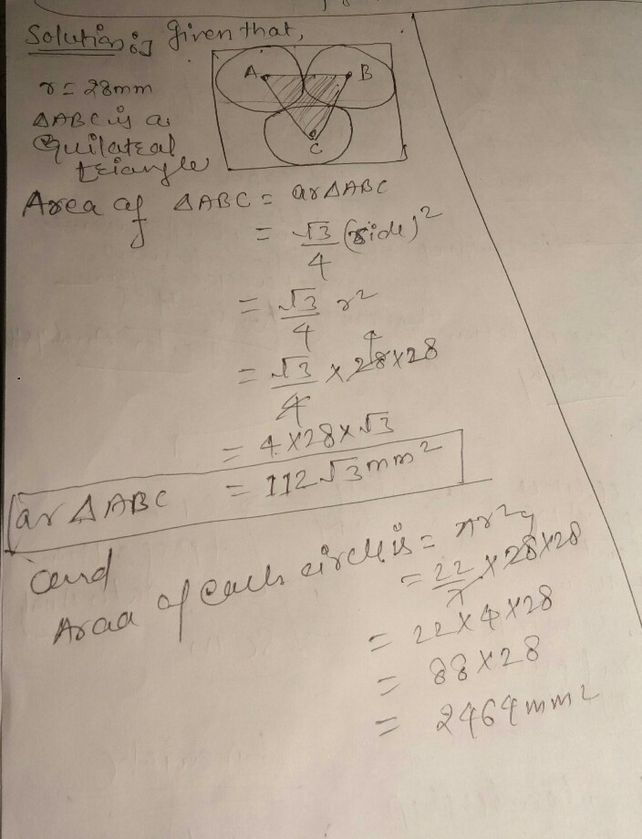 Solution:⇒ Given that,
A B
C
r = 28mm
ΔABC is a
Equilateral
triangle
Area of ΔABC = arΔABC
= √3/4 (side)²
= √3/4 r²
= √3/4 × 28×28
= 4×28×√3
ar ΔABC = 112√3mm²
and
Araa of each circle is = πr²
= 22/7 × 28×28
= 22×4×28
= 88×28
= 2464mm²